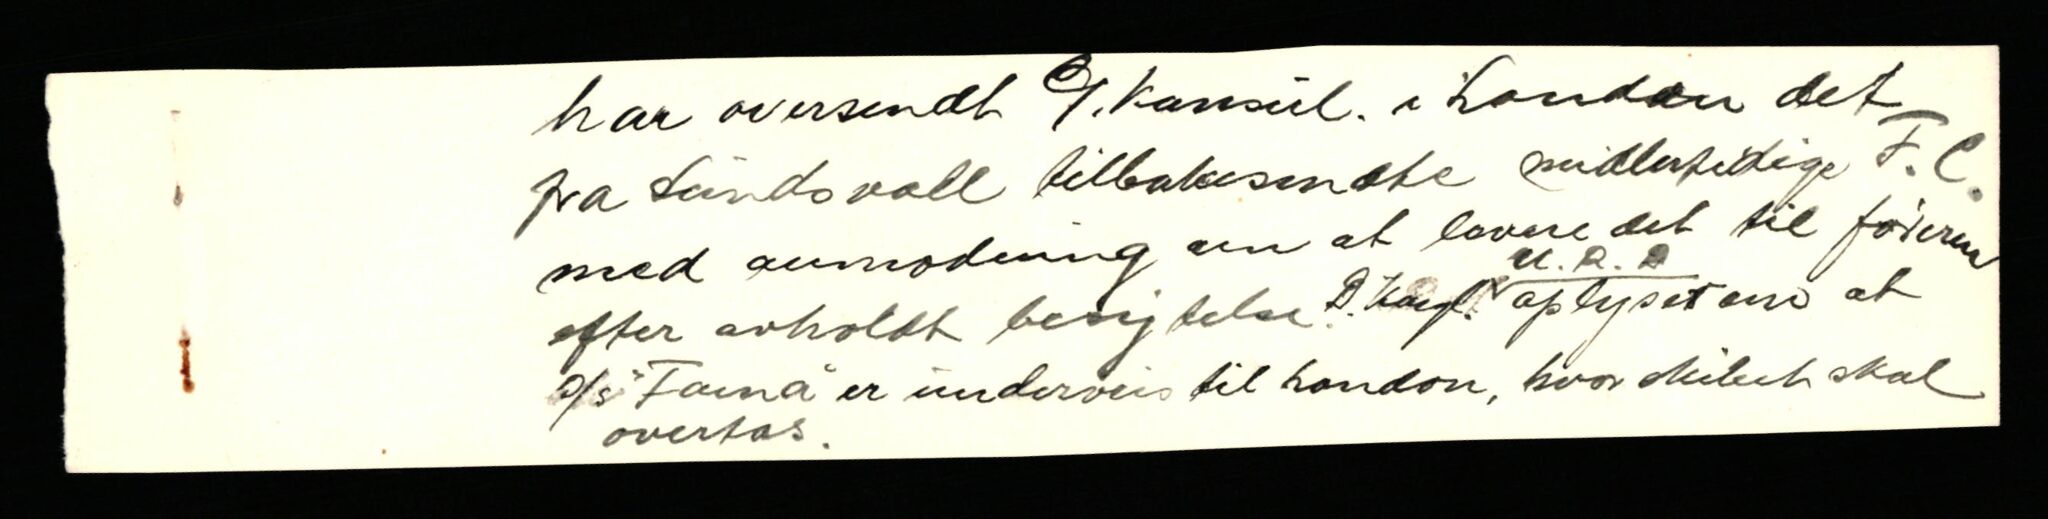 har oversendt G/. Konsul. i London det
fra Sundsvall tilbakesendte midlertidige F. C.
med anmodning om at levere det til føreren
efter avholdt besigtelse.
U. D. D
oplyset om at
D/S "Fornå" er underveis til London, hvor skibet skal
overtas.